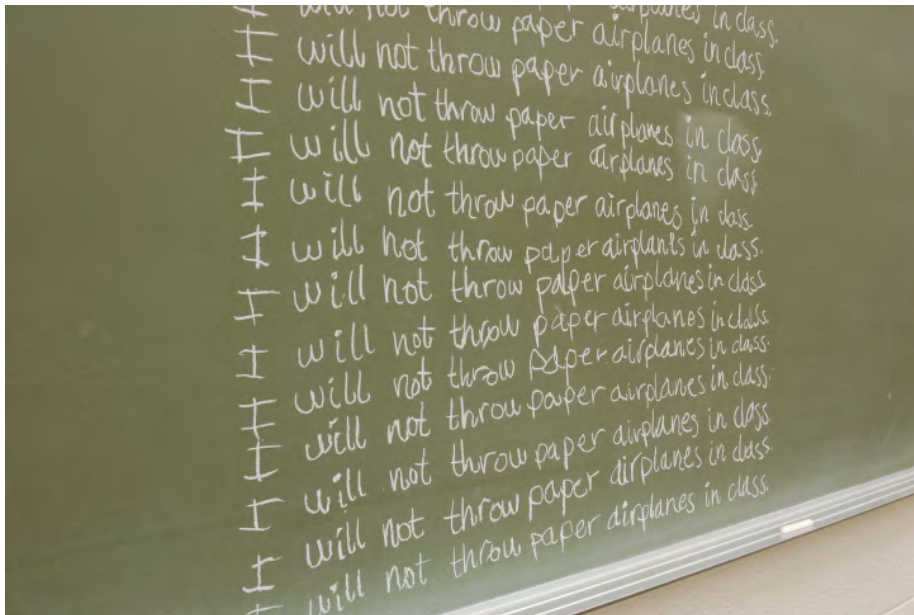 airplanes in class.
I will not throw paper airplanes in class.
I will not throw paper airplanes in class.
I will not throw paper airplanes in class.
I will not throw paper airplanes in class
I will not throw paper airplanes in class.
I will not throw paper airplanes in class.
I will not throw paper airplanes in class
I will not throw paper airplanes in class.
I will not throw paper airplanes in class.
I will not throw paper airplanes in class.
I will not throw paper airplanes in class
I will not throw paper airplanes in class.
I will not throw paper airplanes in class.